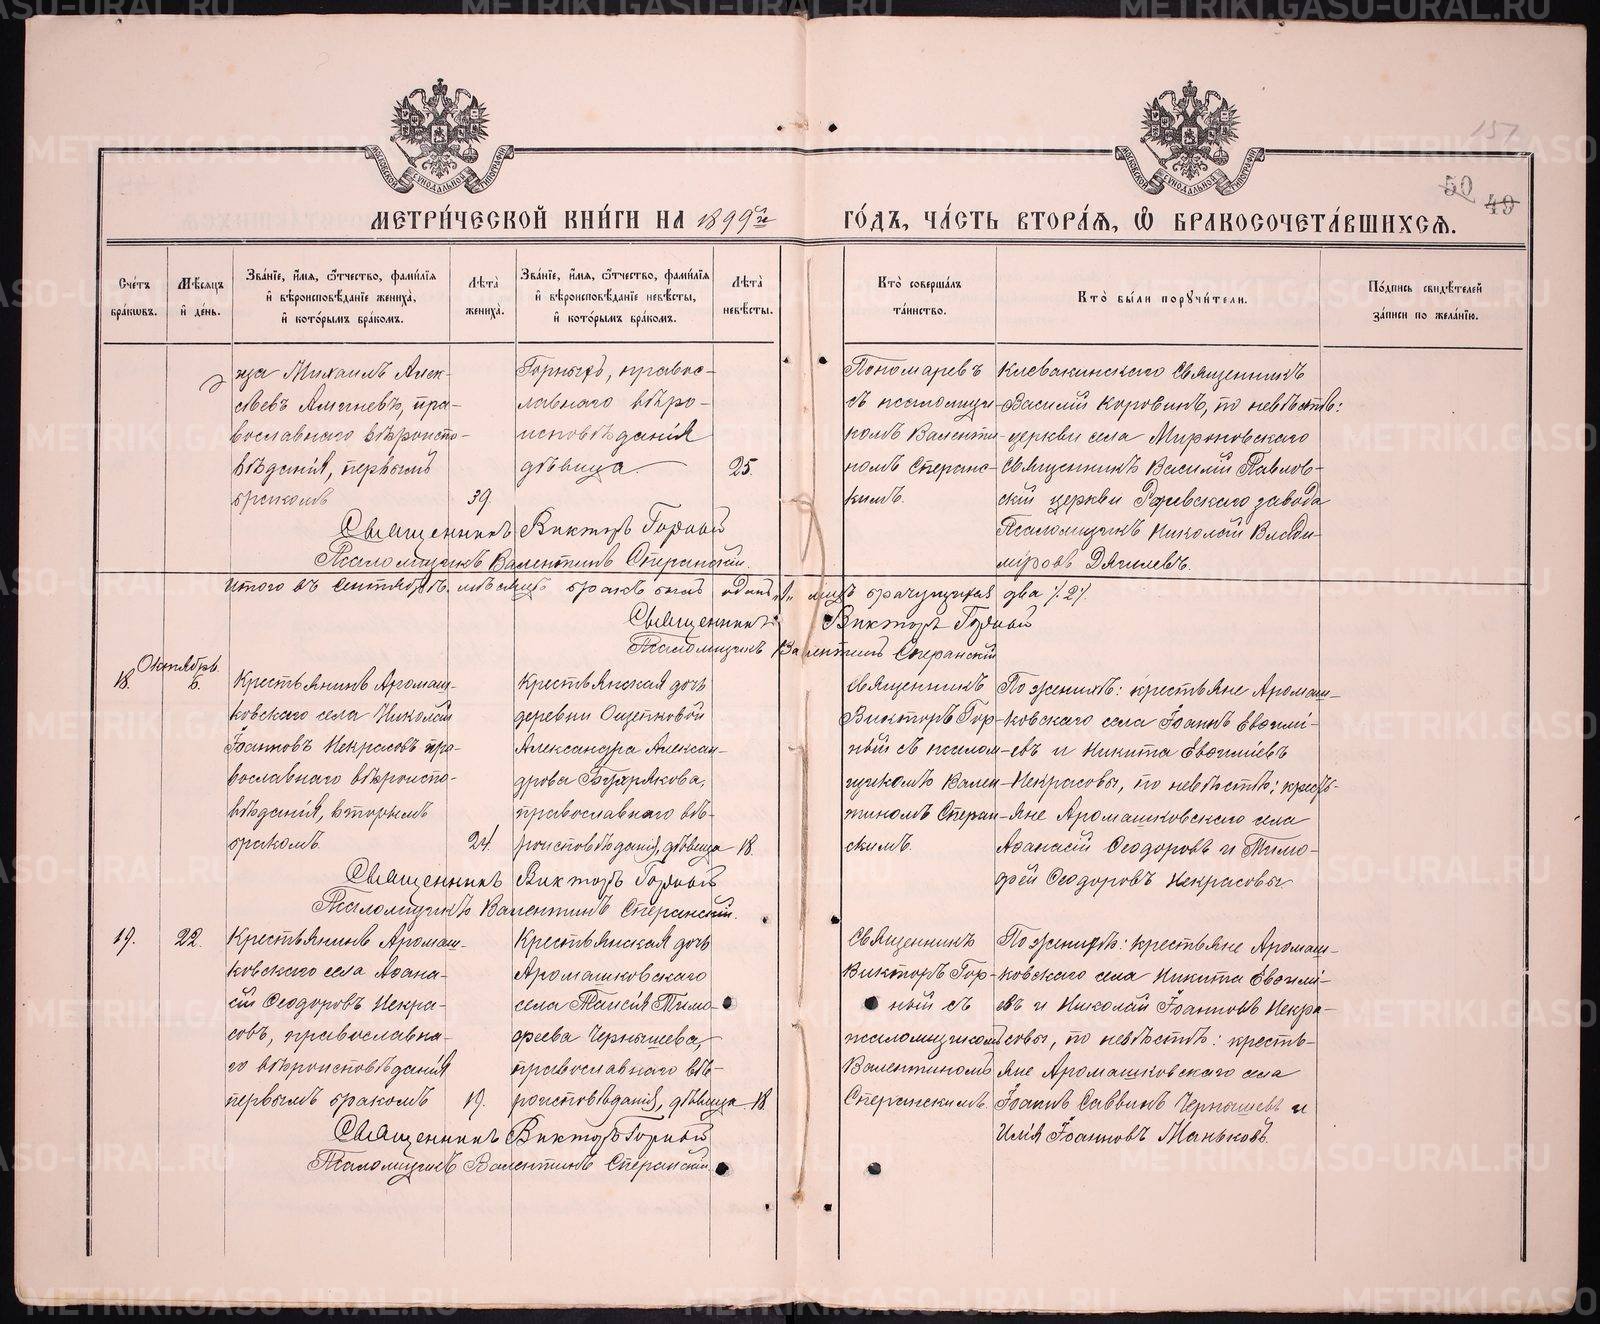 METRIKI.GASO-URAL.RU
151
50
49
МЕТРИ́ЧЕСКОЙ КНИ́ГИ НА 1899й
ГО́ДЪ, ЧА́СТЬ ВТОРА́Я, Ѡ҆ БРАКОСОЧЕТА́ВШИХСЯ.
Сче́тъ бра́ковъ.
Мѣ́сяцъ и҆ де́нь.
Зва́нїе, и҆́мя, ѻ҆́тчество, фами́лїя и҆ вѣроисповѣ́данїе жениха̀, и҆ кото́рымъ бра́комъ.
Лѣ́та̀ жениха̀.
Зва́нїе, и҆́мя, ѻ҆́тчество, фами́лїя и҆ вѣроисповѣ́данїе невѣ́сты, и҆ кото́рымъ бра́комъ.
Лѣ́та̀ невѣ́сты.
Кто̀ соверша́лъ та́инство.
Кто̀ бы́ли порꙋчи́тели.
По́дпись свидѣ́телей за́писи по жела́нїю.
ца Михаилъ Алек-
сѣевъ, пра-
вославнаго вѣроиспо-
вѣданія, первымъ
бракомъ
39.
Горныхъ, правос-
лавнаго вѣро-
исповѣданія
дѣвица
25.
Пономаревъ
съ псаломщи-
комъ Валенти-
номъ Сперанс-
кимъ.
Клевакинскаго Священникъ
Василій Коровинъ, по невѣстѣ:
церкви села Мироновскаго
Священникъ Василій Павлов-
скій церкви Режевскаго завода
Псаломщикъ Николай Влади-
міровъ Дягилевъ.
Священникъ Викторъ Горный
Псаломщикъ Валентинъ Сперанскій.
Итого въ Сентябрѣ мѣсяцѣ бракъ былъ одинъ „1„ лицъ брачущихся два /.2/.
Священникъ Викторъ Горный
Псаломщикъ Валентинъ Сперанскій
Октябрь.
18.
5.
Крестьянинъ Аромаш-
ковскаго села Николай
Іоанновъ Некрасовъ пра-
вославнаго вѣроиспо-
вѣданія, вторымъ
бракомъ.
24.
Крестьянская дочь
деревни Ощепковой
Александра Алексан-
дрова Бударякова,
православнаго вѣ-
роисповѣданія, дѣвица
18.
Священникъ
Викторъ Гор-
ный съ псалом-
щикомъ Вален-
тиномъ Сперан-
скимъ.
По женихѣ: крестьяне Аромаш-
ковскаго села Іоаннъ Евѳимі-
евъ и Никита Евѳиміевъ
Некрасовы, по невѣстѣ: кресть-
яне Аромашковскаго села
Аѳанасій Ѳеодоровъ и Тимо-
фей Ѳеодоровъ Некрасовы
Священникъ Викторъ Горный
Псаломщикъ Валентинъ Сперанскій.
19.
22.
Крестьянинъ Аромаш-
ковскаго села Аѳана-
сій Ѳеодоровъ Некра-
совъ, православна-
го вѣроисповѣданія
первымъ бракомъ
19.
Крестьянская дочь
Аромашковскаго
села Таисія Тимо-
феева Чернышева,
православнаго вѣ-
роисповѣданія, дѣвица
18.
Священникъ
Викторъ Гор-
ный съ
псаломщикомъ
Валентиномъ
Сперанскимъ.
По женихѣ: крестьяне Аромаш-
ковскаго села Никита Евѳимі-
евъ и Николай Іоанновъ Некра-
совы, по невѣстѣ: кресть-
яне Аромашковскаго села
Іоаннъ Саввинъ Чернышевъ и
Илія Іоанновъ Маньковъ.
Священникъ Викторъ Горный
Псаломщикъ Валентинъ Сперанскій.